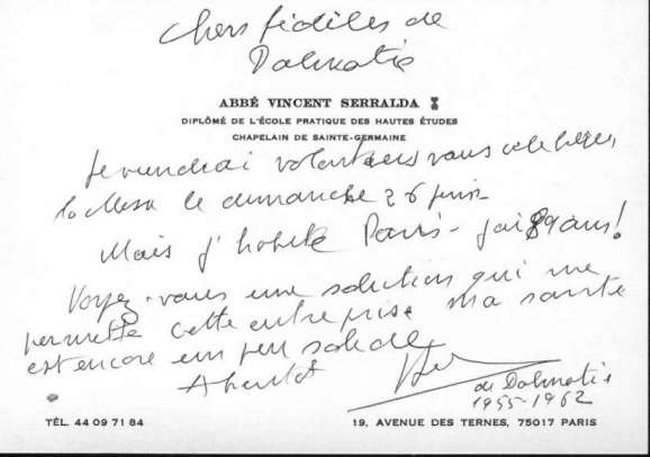 Chers fidèles de
Dalmatie
ABBÉ VINCENT SERRALDA
DIPLÔMÉ DE L'ÉCOLE PRATIQUE DES HAUTES ÉTUDES
CHAPELAIN DE SAINTE-GERMAINE
Je viendrai volontiers vous célébrer
la Messe le dimanche 26 juin
Mais j'habite Paris - j'ai 89 ans !
Voyez-vous une solution qui me
permette cette entreprise Ma santé
est encore un peu solide
A bientôt
de Dalmatie
1955-1962
TÉL. 44 09 71 84
19, AVENUE DES TERNES, 75017 PARIS